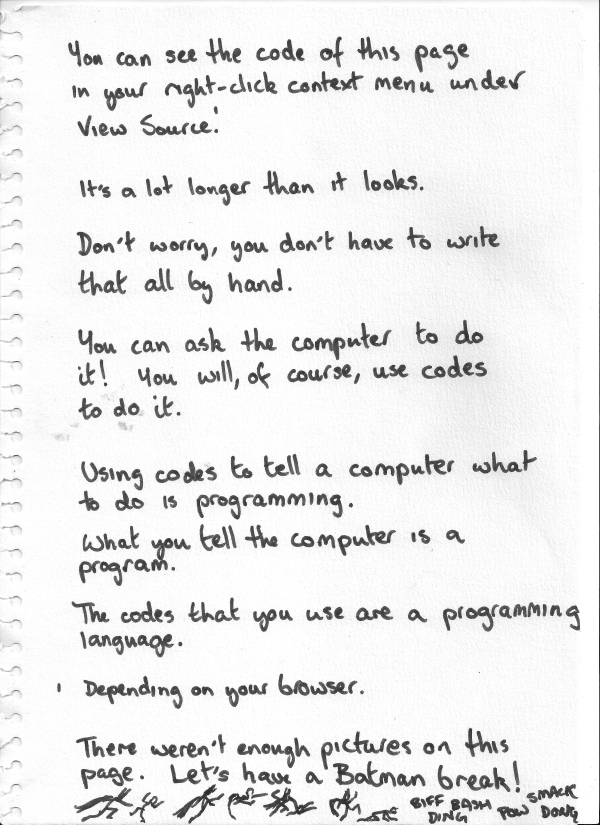 You can see the code of this page
in your right-click context menu under
View Source!
It's a lot longer than it looks.
Don't worry, you don't have to write
that all by hand.
You can ask the computer to do
it! You will, of course, use codes
to do it.
Using codes to tell a computer what
to do is programming.
What you tell the computer is a
program.
The codes that you use are a programming
language.
ı Depending on your browser.
There weren't enough pictures on this
page. Let's have a Batman break!
BIFF BASH SMACK
DING POW DOINK